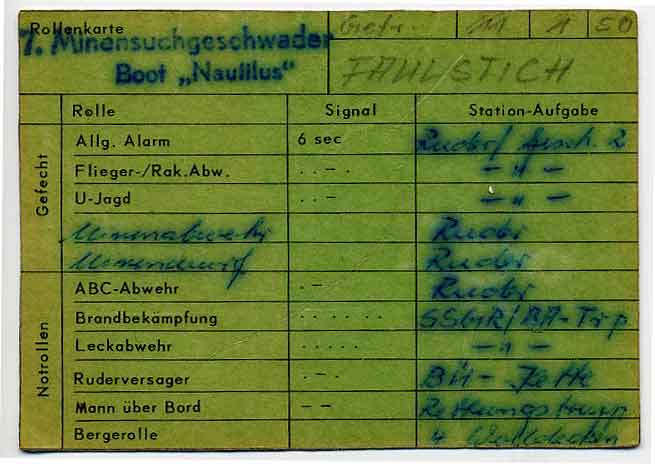 Rollenkarte Gefr. 11 1 50
7. Minensuchgeschwader
Boot „Nautilus“ FAULSTICH
Rolle Signal Station-Aufgabe
Gefecht
Allg. Alarm 6 sec Ruder/ Gesch. 2
Flieger-/Rak.Abw. . . – . – " –
U-Jagd . . – – " –
Minenabwehr Ruder
Minenwurf Ruder
Notrollen
ABC-Abwehr . – . Ruder
Brandbekämpfung . . . . . . SSTR/BA-Trp
Leckabwehr . . . . . – " –
Ruderversager . . – .
Mann über Bord – – Rettungstrupp
Bergerolle 4 Wolldecken